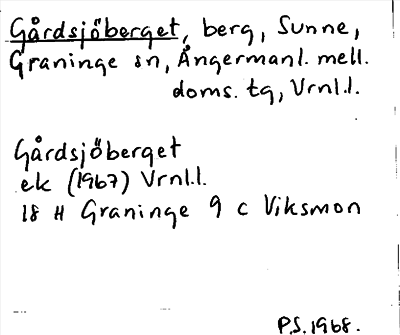 Gårdsjöberget, berg, Sunne,
Graninge sn, Ångermanl. mell.
doms. tg, Vrnl.l.
Gårdsjöberget
ek (1967) Vrnl.l.
18 H Graninge 9 c Viksmon
P.S. 1968.